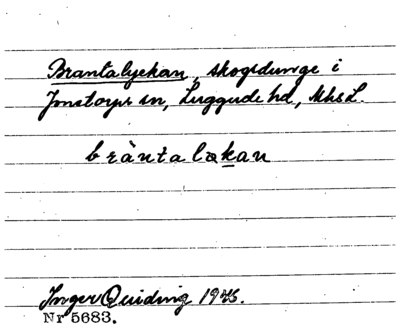 Brantalyckan, skogsdunge i
Jonstorps sn, Luggude hd, Mhs L.
bràntalakan
Inger Quiding 1976.
Nr 5683.